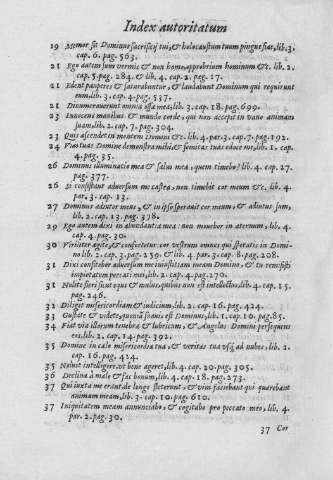 Index autoritatum
19 Memor sit Dominus sacrificij tui, & holocaustum tuum pingue fiat, lib. 3.
cap. 6. pag. 563.
21 Ego autem sum vermis & non homo, opprobrium hominum &c. lib. 2.
cap. 5. pag. 284. & lib. 4. cap. 2. pag. 17.
21 Edent pauperes & saturabuntur, & laudabunt Dominum qui requirunt
eum, lib. 3. cap. 4. pag. 537.
21 Dinumerauerunt omnia ossa mea, lib. 3. cap. 18. pag. 699.
23 Innocens manibus & mundo corde, qui non accepit in vano animam
suam, lib. 2. cap. 7. pag. 304.
23 Quis ascendet in montem Domini &c. lib. 4. par. 3. cap. 7. pag. 192.
24 Vias tuas Domine demonstra mihi, & semitas tuas edoce me, lib. 1. cap.
4. pag. 35.
26 Dominus illuminatio mea & salus mea, quem timebo? lib. 4. cap. 27.
pag. 377.
26 Si consistant aduersum me castra, non timebit cor meum &c. lib. 4.
par. 3. cap. 13.
27 Dominus adiutor meus, & in ipso sperauit cor meum, & adiutus sum,
lib. 2. cap. 13. pag. 378.
29 Ego autem dixi in abundantia mea: non mouebor in æternum, lib. 4.
cap. 4. pag. 30.
30 Viriliter agite, & confortetur cor vestrum omnes qui speratis in Domi-
no lib. 2. cap. 3. pag. 259. & lib. 4. par. 3. cap. 8. pag. 208.
31 Dixi confitebor aduersum me iniustitiam meam Domino, & tu remisisti
impietatem peccati mei, lib. 2. cap. 4. pag. 270.
31 Nolite fieri sicut equus & mulus, quibus non est intellectus, lib. 4. cap. 15.
pag. 246.
32 Diligit misericordiam & iudicium, lib. 2. cap. 16. pag. 424.
33 Gustate & videte, quoniã suauis est Dominus, lib. 1. cap. 10. pag. 85.
34 Fiat via illorum tenebræ & lubricum, & Angelus Domini persequens
eos, lib. 2. cap. 14. pag. 392.
35 Domine in cælo misericordia tua, & veritas tua vsq; ad nubes, lib. 2.
cap. 16. pag. 424.
35 Noluit intelligere, vt bene ageret, lib. 4. cap. 20. pag. 305.
36 Declina à malo & fac bonum, lib. 4. cap. 18. pag. 273.
37 Qui iuxta me erant de longe steterunt, & vim faciebant qui quærebant
animam meam, lib. 3. cap. 10. pag. 610.
37 Iniquitatem meam annunciabo, & cogitabo pro peccato meo, lib. 4.
par. 2. pag. 30.
37 Cor